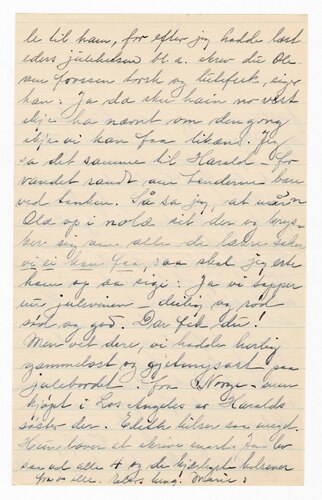 le til ham, for efter jeg hadde læst
eders julehilsen bl. a. skrev du Ole
om torsk og
han: Ja da
ikje ha nævnt om den gong
ikje vi kan faa Jeg
sa det samme til Harald - for
vandet randt, om tenderne bare
ved tanken. Så sa jeg, at når
Ola op i nold sit der og
ker sig om alle de lækre saker
vi ei kan faa, saa skal jeg erte
ham og saa sige: Ja vi tapper
nu julevinen - deilig og rød
sød og god. Der fik du!
Men vet dere, vi hadde herlig
gammelost og gjetmysost paa
julebordet. fra Norge - men
kjøpt i Los Angeles av Haralds
søster der. Edith hilser saa meget.
Hun lover at skrive snart. Ja lev
saa vel alle + og de kjærligste hilsener
fra os alle. Marie